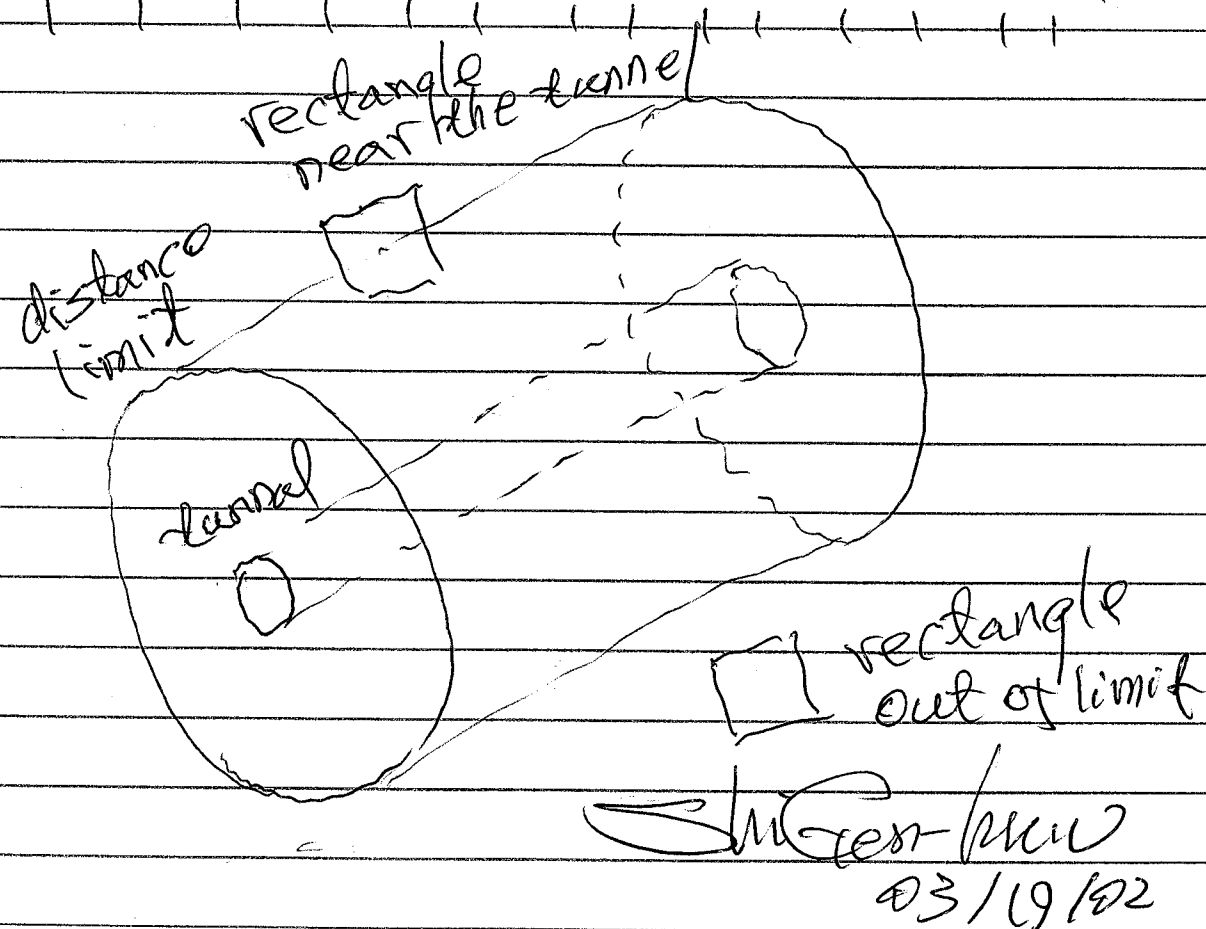 rectangle
near the tunnel
distance
limit
tunnel
rectangle
out of limit
03/19/02